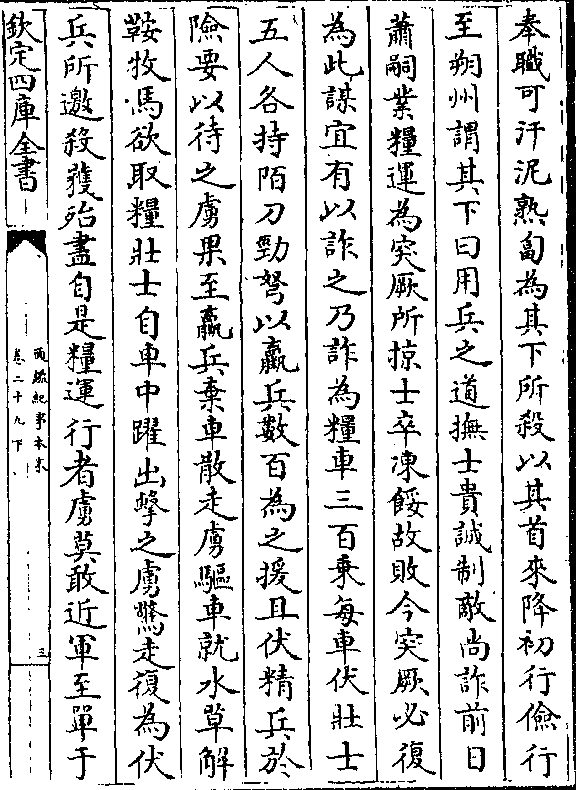 奉職可汗泥熟匐為其下所殺以其首來降初行儉行
至朔州謂其下曰用兵之道撫士貴誠制敵尚詐前日
蕭嗣業糧運為突厥所掠士卒凍餒故敗今突厥必復
為此謀宜有以詐之乃詐為糧車三百乗每車伏壯士
五人各持陌刀勁弩以羸兵數百為之援且伏精兵於
險要以待之虜果至羸兵棄車散走虜驅車就水草解
鞍牧馬欲取糧壯士自車中躍出擊之虜驚走復為伏
兵所邀殺獲殆盡自是糧運行者虜莫敢近軍至單于
欽定四庫全書
通鑑紀事本末
卷二十九下
三